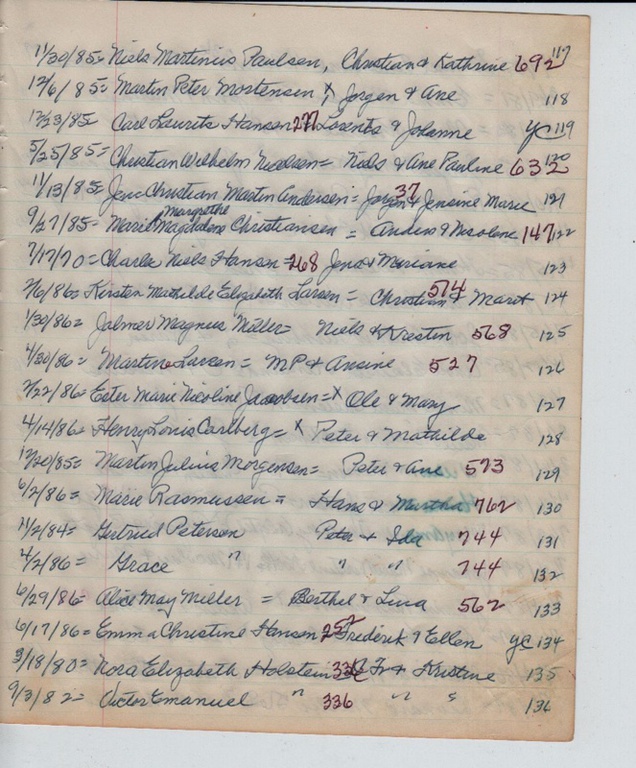 11/30/85= Niels Martinius Paulsen, Christian & Kathrine 692 117
12/6/85= Martin Peter Mortensen X Jorgen & Ane 118
12/23/85 Carl Lauritz Hansen 277 Lorents & Johanne YC 119
5/25/85= Christian Wilhelm Nicolsen= Niels & Ane Pauline 632 120
11/13/85= Jens Christian Martin Andersen= Jorgen & Jensine Marie 37 121
9/27/85= Marie Margrethe Magdalene Christiansen = Anders & 147 122
7/17/70= Charles Niels Hansen= 268 Jens & Mariane 123
2/6/86= Kirsten Mathilde Elizabeth Larsen = Christian & Maret 514 124
1/30/86= Jalmer Magnus Miller= Niels & Kresten 568 125
4/30/86= Martine Larsen = MP & Ansine 527 126
2/22/86= Ester Marie Nicoline Jacobsen= X Ole & Mary 127
4/14/86= Henry Louis Carlberg= X Peter & Mathilde 128
12/20/85= Martin Julius Morgensen= Peter & Ane 573 129
6/2/86= Marie Rasmussen = Hans & Martha 762 130
11/2/84= Gertrud Petersen Peter & Ida 744 131
4/2/86= Grace " " " 744 132
6/29/86= Alice May Miller = Berthel & Lina 562 133
6/17/86= Emma Christine Hansen 252 Frederik & Ellen YC 134
3/18/80= Nora Elizabeth Holstein 336 Fr & Kristine 135
9/3/82= Victor Emanuel " 336 " " 136